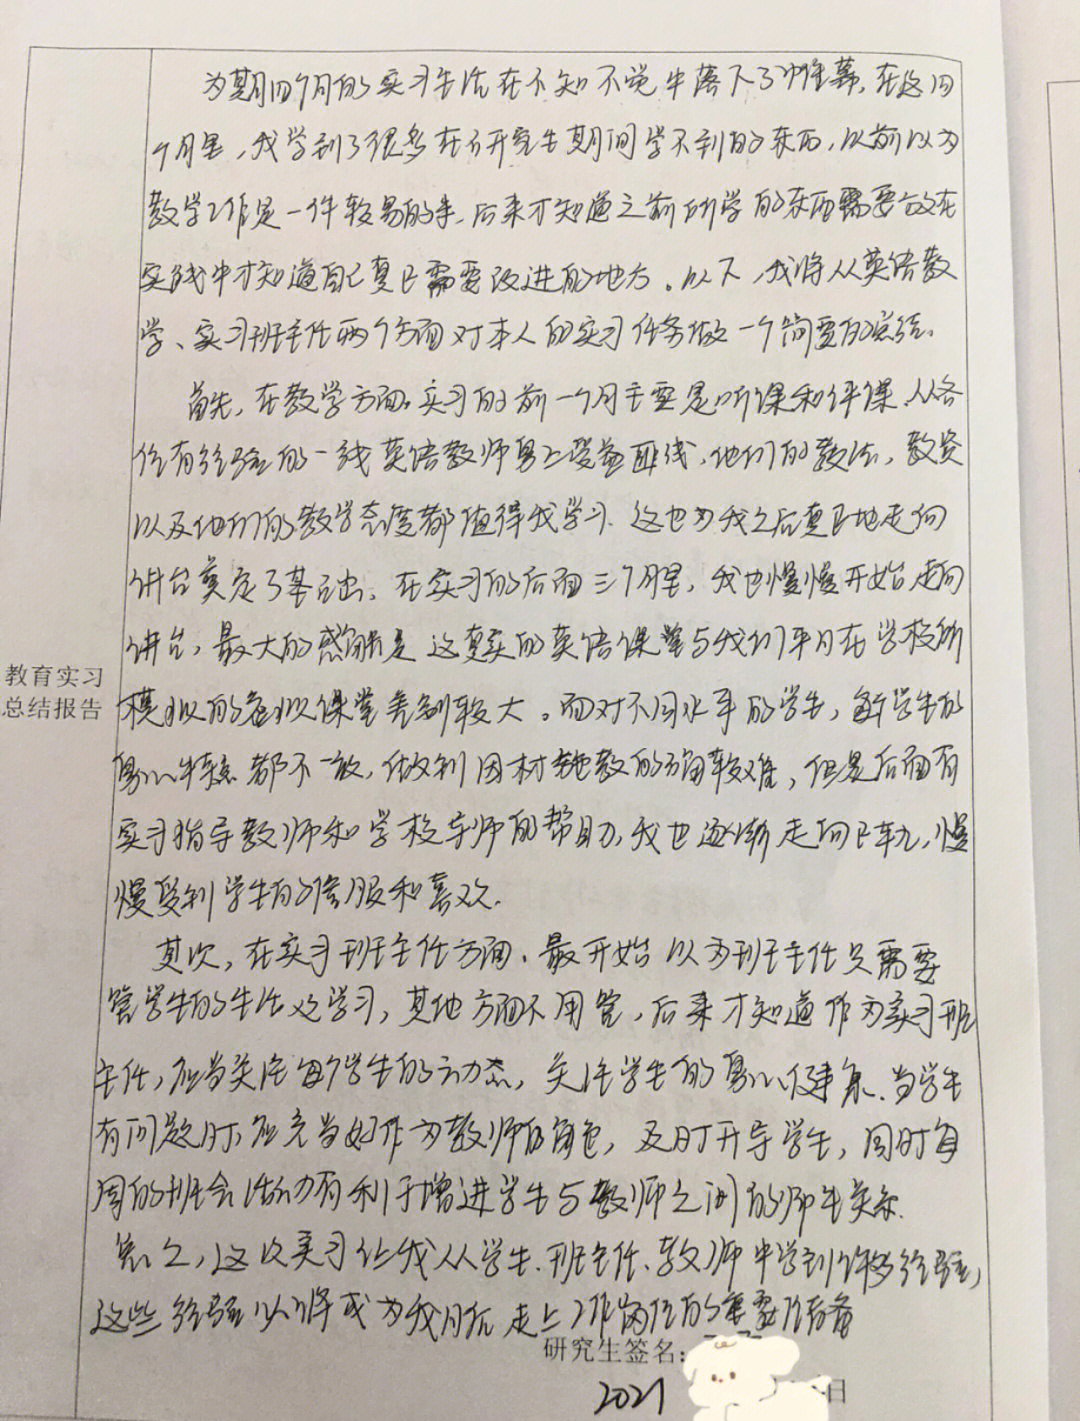 为期四个月的实习生活在不知不觉中落下了帷幕,在这四
个月里,我学到了很多在研究生期间学不到的东西,以前以为
教学工作是一件较易的事,后来才知道之前所学的东西需要放在
实践中才知道自己真正需要改进的地方。以下,我将从英语教
学、实习班主任两个方面对本人的实习任务做一个简要的总结.
首先,在教学方面,实习的前一个月主要是听课和评课,从各
位有经验的一线英语教师身上受益匪浅,他们的教法,教资
以及他们的教学态度都值得我学习.这也为我之后真正地走向
讲台奠定了基础.在实习的后面三个月里,我也慢慢开始走向
讲台,最大的感触是这真实的英语课堂与我们平日在学校所
教育实习
总结报告
模拟的虚拟课堂差别较大。面对不同水平的学生,每个学生的
身心特点都不一致,做到因材施教的确较难,但是后面有
实习指导教师和学校导师的帮助,我也逐渐走向正轨,慢
慢受到学生的信服和喜欢.
其次,在实习班主任方面,最开始以为班主任只需要
管学生的生活及学习,其他方面不用管,后来才知道作为实习班
主任,应当关注每个学生的动态,关注学生的身心健康.当学生
有问题时,应充当好作为教师的角色,及时开导学生,同时每
周的班会活动有利于增进学生与教师之间的师生关系.
总之,这次实习让我从学生、班主任、教师中学到许多经验,
这些经验必将成为我日后走上工作岗位的重要储备
研究生签名:
2021
日